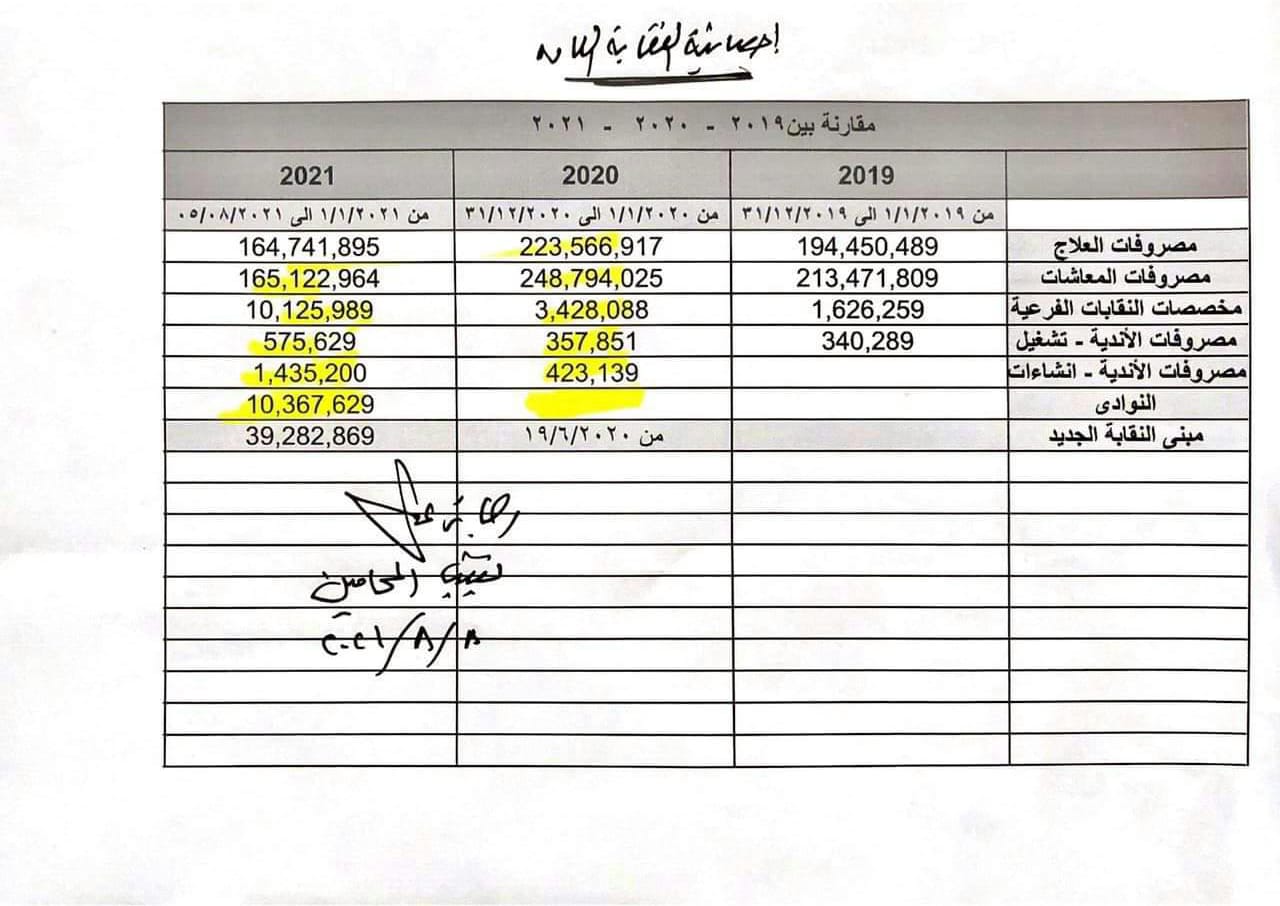 إحصائية النقابة العامة
مقارنة بين ٢٠١٩ - ٢٠٢٠ - ٢٠٢١
2019 2020 2021
من ١/١/٢٠١٩ الى ٣١/١٢/٢٠١٩ من ١/١/٢٠٢٠ الى ٣١/١٢/٢٠٢٠ من ١/١/٢٠٢١ الى ٠٥/٠٨/٢٠٢١
مصروفات العلاج 194,450,489 223,566,917 164,741,895
مصروفات المعاشات 213,471,809 248,794,025 165,122,964
مخصصات النقابات الفرعية 1,626,259 3,428,088 10,125,989
مصروفات الأندية - تشغيل 340,289 357,851 575,629
مصروفات الأندية - انشاءات 423,139 1,435,200
النوادى 10,367,629
مبنى النقابة الجديد من ١٩/٦/٢٠٢٠ 39,282,869
رجائى عطية
نقيب المحامين
٨/٨/٢٠٢١